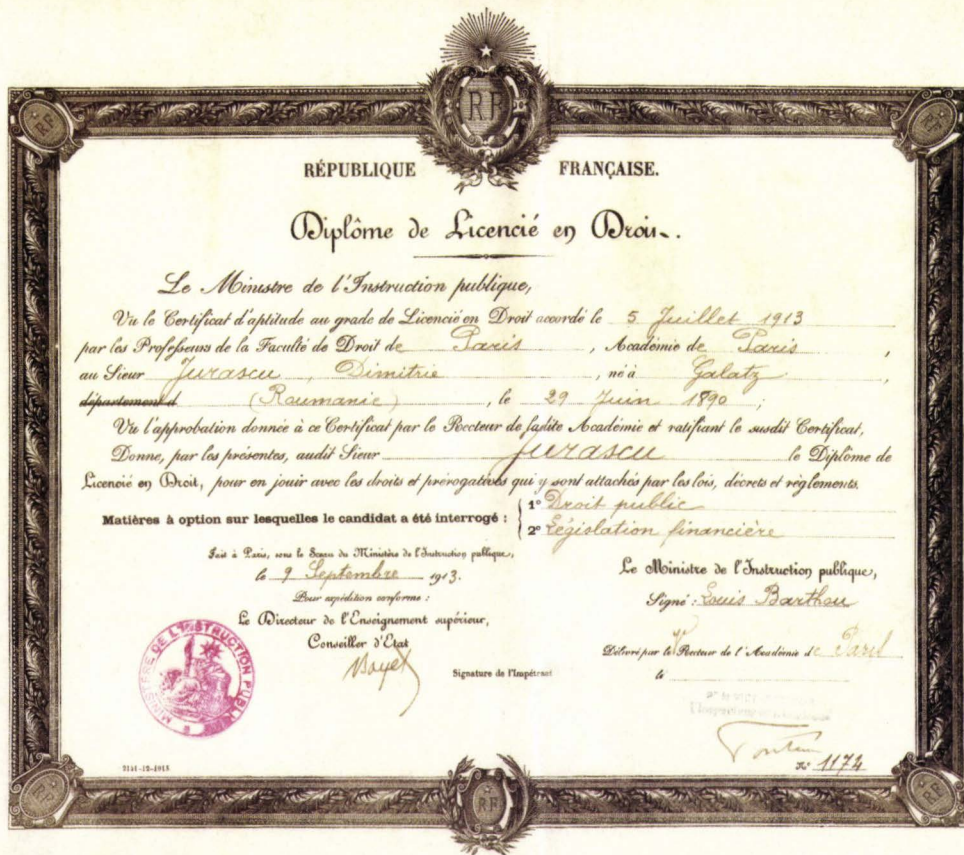 RF
RF
RF
RÉPUBLIQUE FRANÇAISE.
Diplôme de Licencié en Droit.
Le Ministre de l'Instruction publique,
Vu le Certificat d'aptitude au grade de Licencié en Droit accordé le 5 Juillet 1913
par les Professeurs de la Faculté de Droit de Paris, Académie de Paris,
au Sieur Jurascu, Dimitrie, né à Galatz,
département d (Roumanie), le 29 Juin 1890;
Vu l'approbation donnée à ce Certificat par le Recteur de ladite Académie et ratifiant le susdit Certificat,
Donne, par les présentes, audit Sieur Jurascu le Diplôme de
Licencié en Droit, pour en jouir avec les droits et prérogatives qui y sont attachés par les lois, décrets et règlements.
Matières à option sur lesquelles le candidat a été interrogé :
1° Droit public
2° Législation financière
Fait à Paris, sous le Sceau du Ministère de l'Instruction publique,
le 9 Septembre 1913.
Pour expédition conforme :
Le Directeur de l'Enseignement supérieur,
Conseiller d'Etat
Bayet
MINISTÈRE DE L'INSTRUCTION PUBLIQUE
Signature de l'Impétrant
Le Ministre de l'Instruction publique,
Signé : Louis Barthou
Délivré par le Recteur de l'Académie de Paris
le
N° 1172
RF
RF
RF